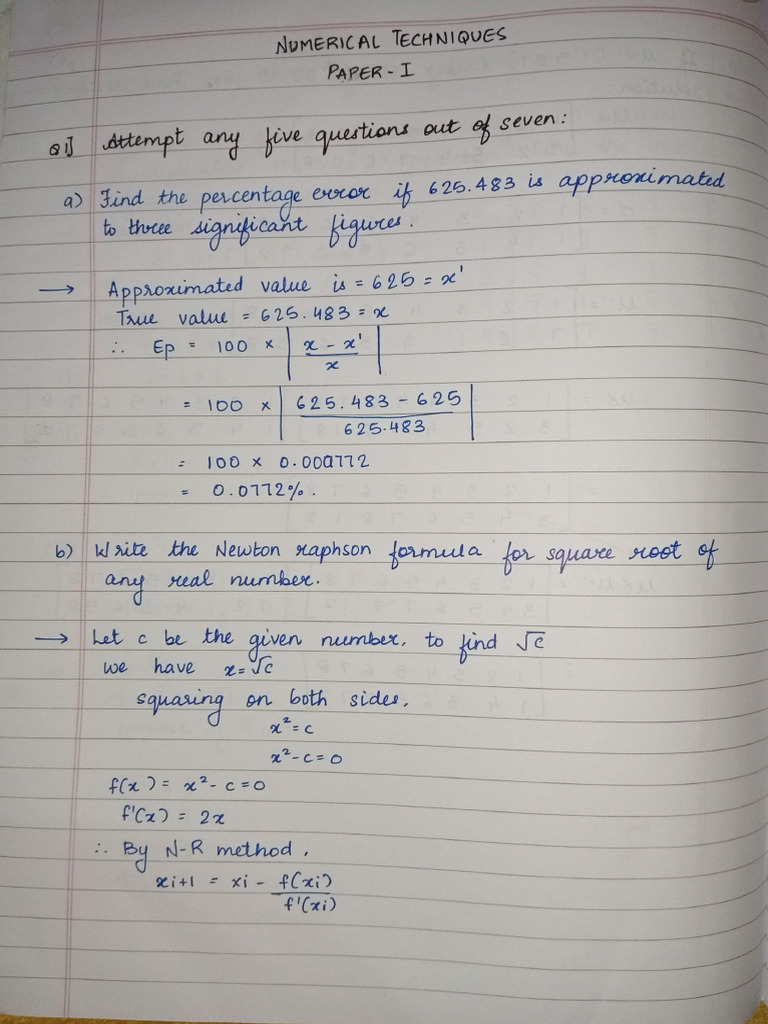 NUMERICAL TECHNIQUES
PAPER - I
Q1] Attempt any five questions out of seven:
a) Find the percentage error if 625.483 is approximated
to three significant figures.
→ Approximated value is = 625 = x'
True value = 625.483 = x
∴ Ep = 100 × | x - x' / x |
= 100 × | 625.483 - 625 / 625.483 |
= 100 × 0.000772
= 0.0772%.
b) Write the Newton raphson formula for square root of
any real number.
→ Let c be the given number, to find √c
we have x=√c
squaring on both sides,
x² = c
x² - c = 0
f(x) = x² - c = 0
f'(x) = 2x
∴ By N-R method,
xi+1 = xi - f(xi) / f'(xi)